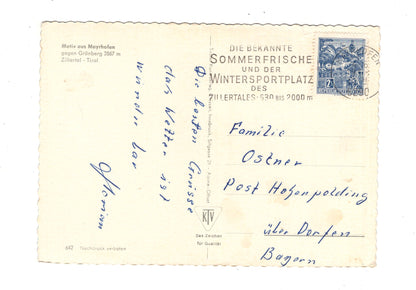 Motiv aus Mayrhofen
gegen Grünberg 2867 m
Zillertal - Tirol
Die besten Grüsse
das Wetter ist
wunder bar
642 Nachdruck verboten
KTV
Das Zeichen
für Qualität
DIE BEKANNTE
SOMMERFRISCHE
UND DER
WINTERSPORTPLATZ
DES
ZILLERTALES · 630 BIS 2000 m
Familie
Ostner
Post Hohenpolding
über Dorfen
Bayern